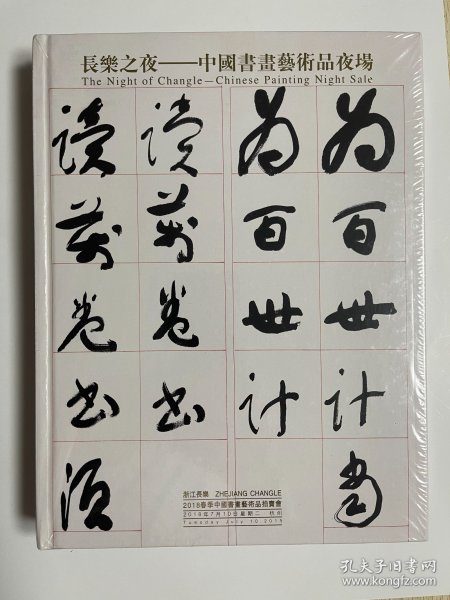 長樂之夜——中國書畫藝術品夜場
The Night of Changle—Chinese Painting Night Sale
為百世計當
為百世計
讀萬卷書
讀萬卷書須
浙江長樂 ZHEJIANG CHANGLE
2018春季中國書畫藝術品拍賣會
2018年7月10日星期二 杭州
Tuesday July 10 2018
孔夫子旧书网
www.kongfz.com